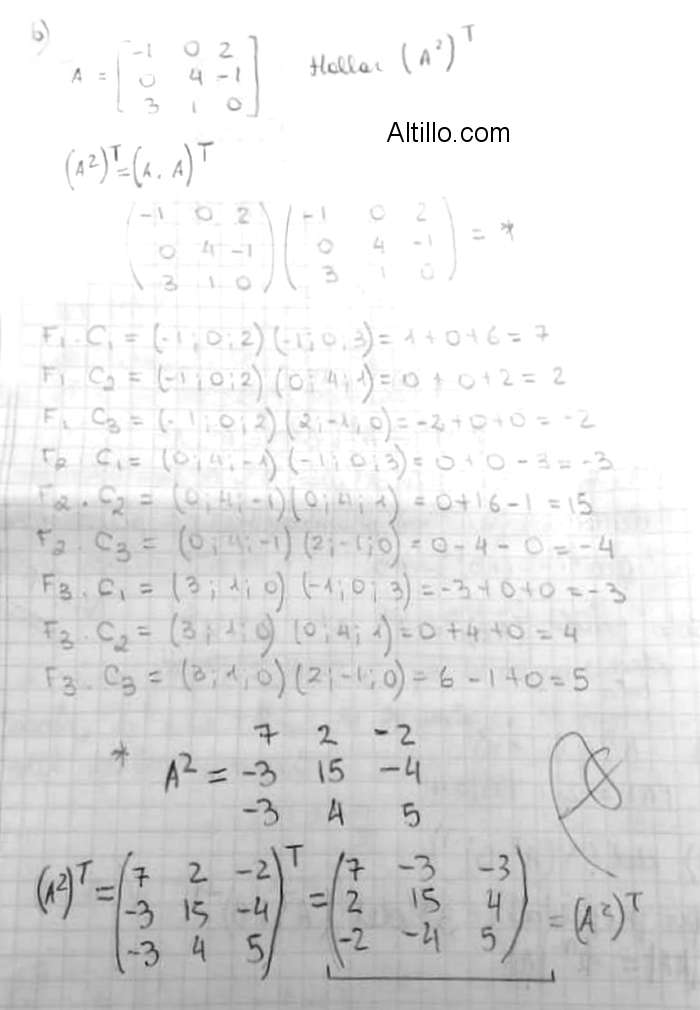 b)
A = [ -1 0 2 Hallar (A²)ᵀ
0 4 -1
3 1 0 ]
Altillo.com
(A²)ᵀ = (A . A)ᵀ
( -1 0 2 ) ( -1 0 2 )
( 0 4 -1 ) ( 0 4 -1 ) = *
( 3 1 0 ) ( 3 1 0 )
F₁ . C₁ = (-1; 0; 2) (-1; 0; 3) = 1 + 0 + 6 = 7
F₁ C₂ = (-1; 0; 2) (0; 4; 1) = 0 + 0 + 2 = 2
F₁ C₃ = (-1; 0; 2) (2; -1; 0) = -2 + 0 + 0 = -2
F₂ C₁ = (0; 4; -1) (-1; 0; 3) = 0 + 0 - 3 = -3
F₂ . C₂ = (0; 4; -1) (0; 4; 1) = 0 + 16 - 1 = 15
F₂ . C₃ = (0; 4; -1) (2; -1; 0) = 0 - 4 - 0 = -4
F₃ . C₁ = (3; 1; 0) (-1; 0; 3) = -3 + 0 + 0 = -3
F₃ . C₂ = (3; 1; 0) (0; 4; 1) = 0 + 4 + 0 = 4
F₃ . C₃ = (3; 1; 0) (2; -1; 0) = 6 - 1 + 0 = 5
7 2 -2
* A² = -3 15 -4
-3 4 5
(A²)ᵀ = ( 7 2 -2 )ᵀ = ( 7 -3 -3 )
( -3 15 -4 ) ( 2 15 4 ) = (A²)ᵀ
( -3 4 5 ) ( -2 -4 5 )